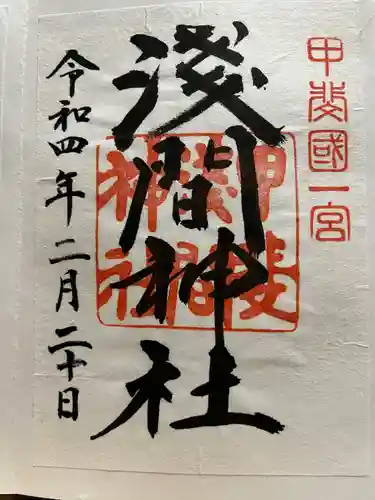 甲斐國一宮
淺間神社
甲斐
淺間
神社
令和四年二月二十日